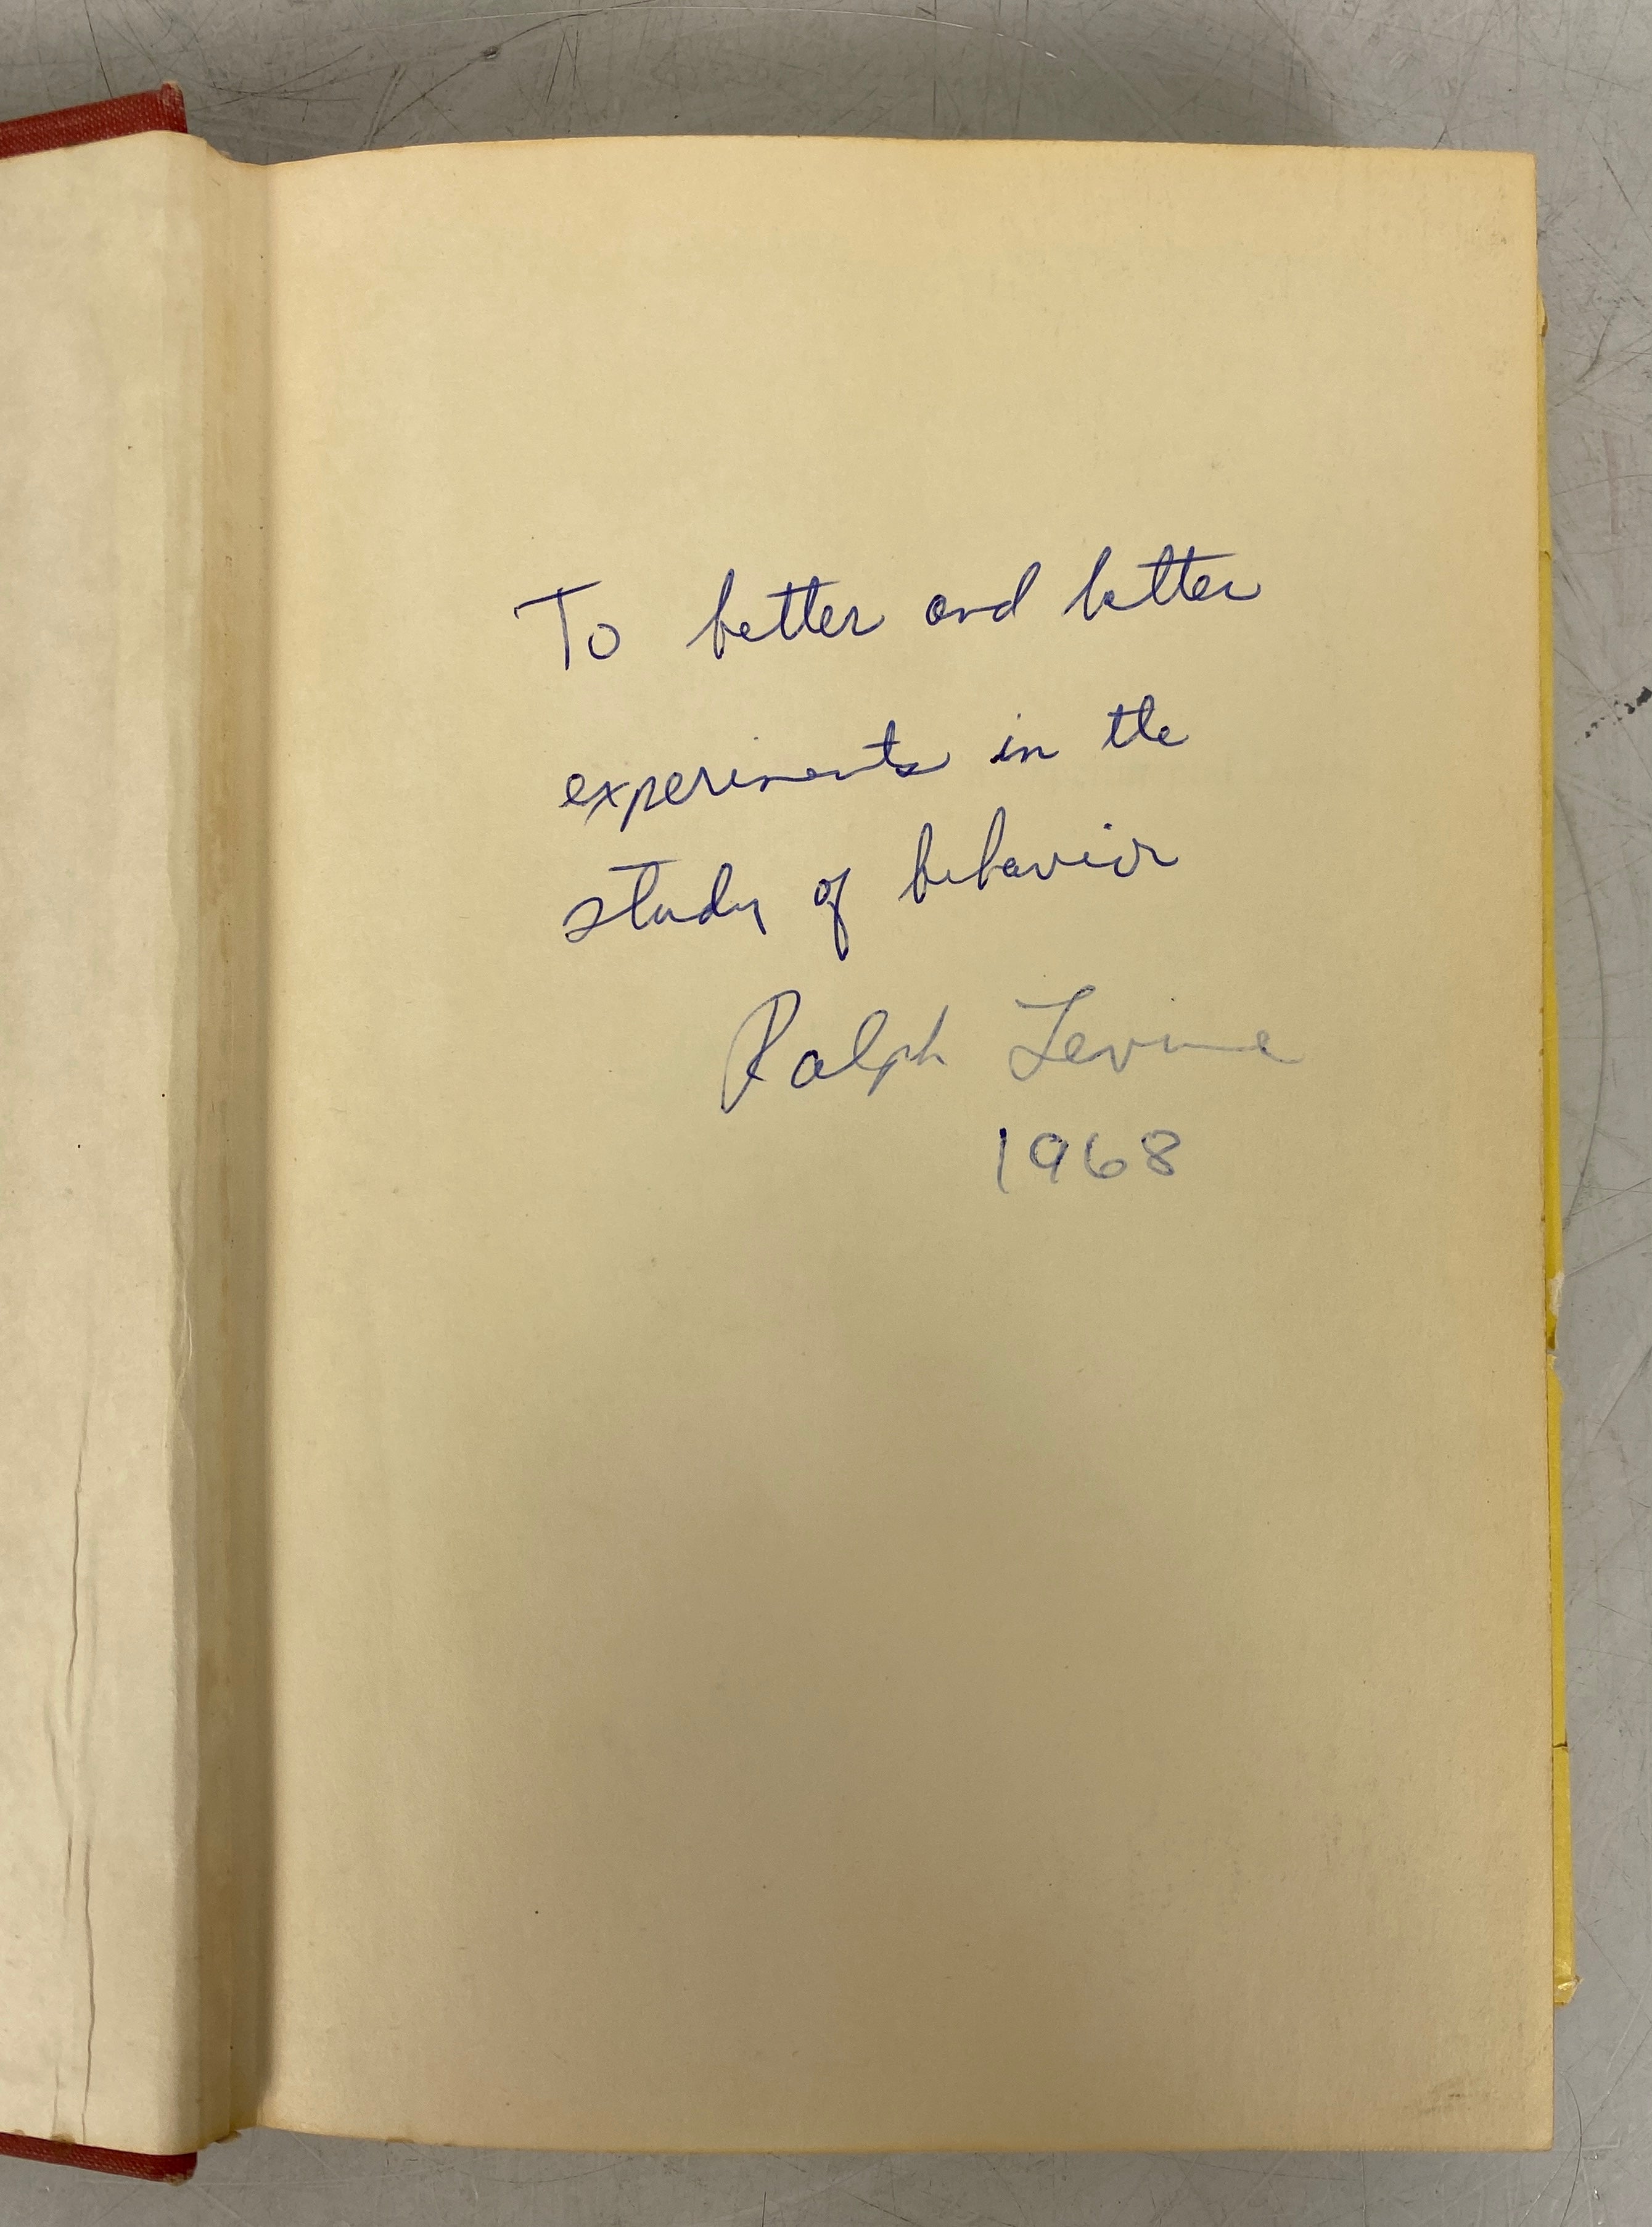 To better and better
experiments in the
study of behavior
Ralph Levine
1968